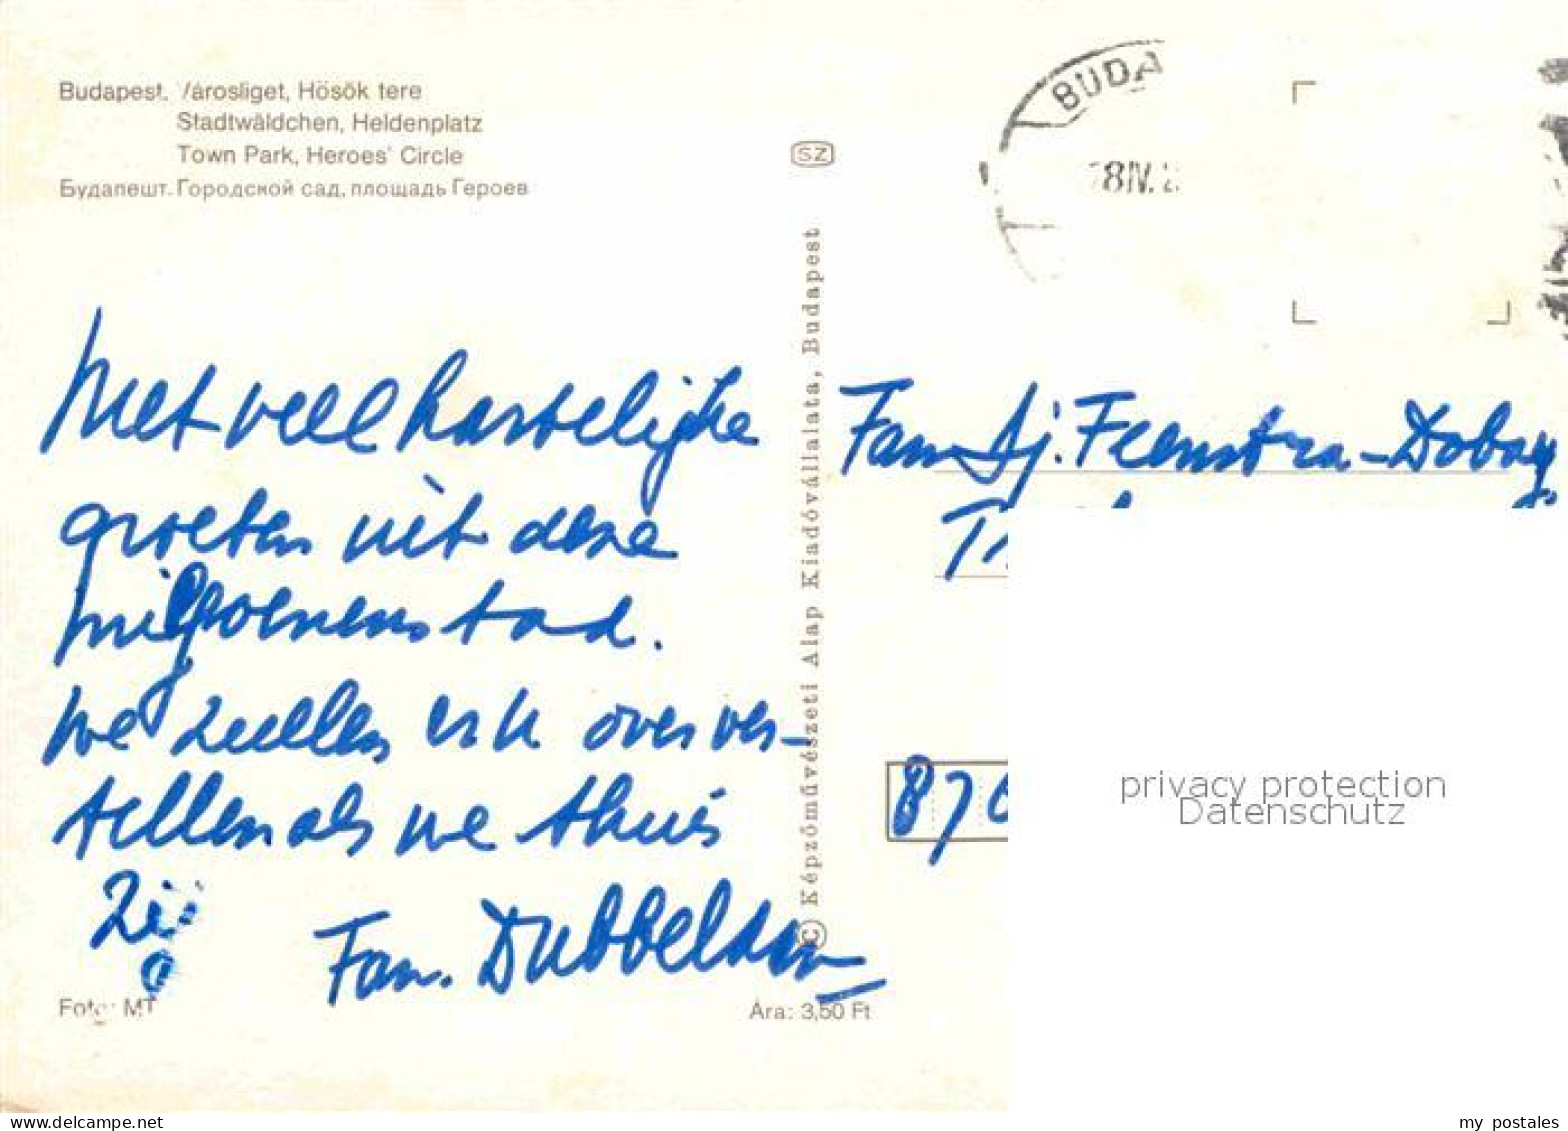 Budapest. Városliget, Hősök tere
Stadtwäldchen, Heldenplatz
Town Park, Heroes' Circle
Будапешт. Городской сад, площадь Героев
SZ
BUDA
8 IV.
Met veel hartelijke
groeten uit deze
miljoenenstad.
We zullen er over ver-
tellen als we thuis
zijn
Fam. Dubbeldam
Foto: MTI
Ára: 3,50 Ft
© Képzőművészeti Alap Kiadóvállalata, Budapest
Fam. Tj. Feenstra-Dobay
870
privacy protection
Datenschutz
my postales